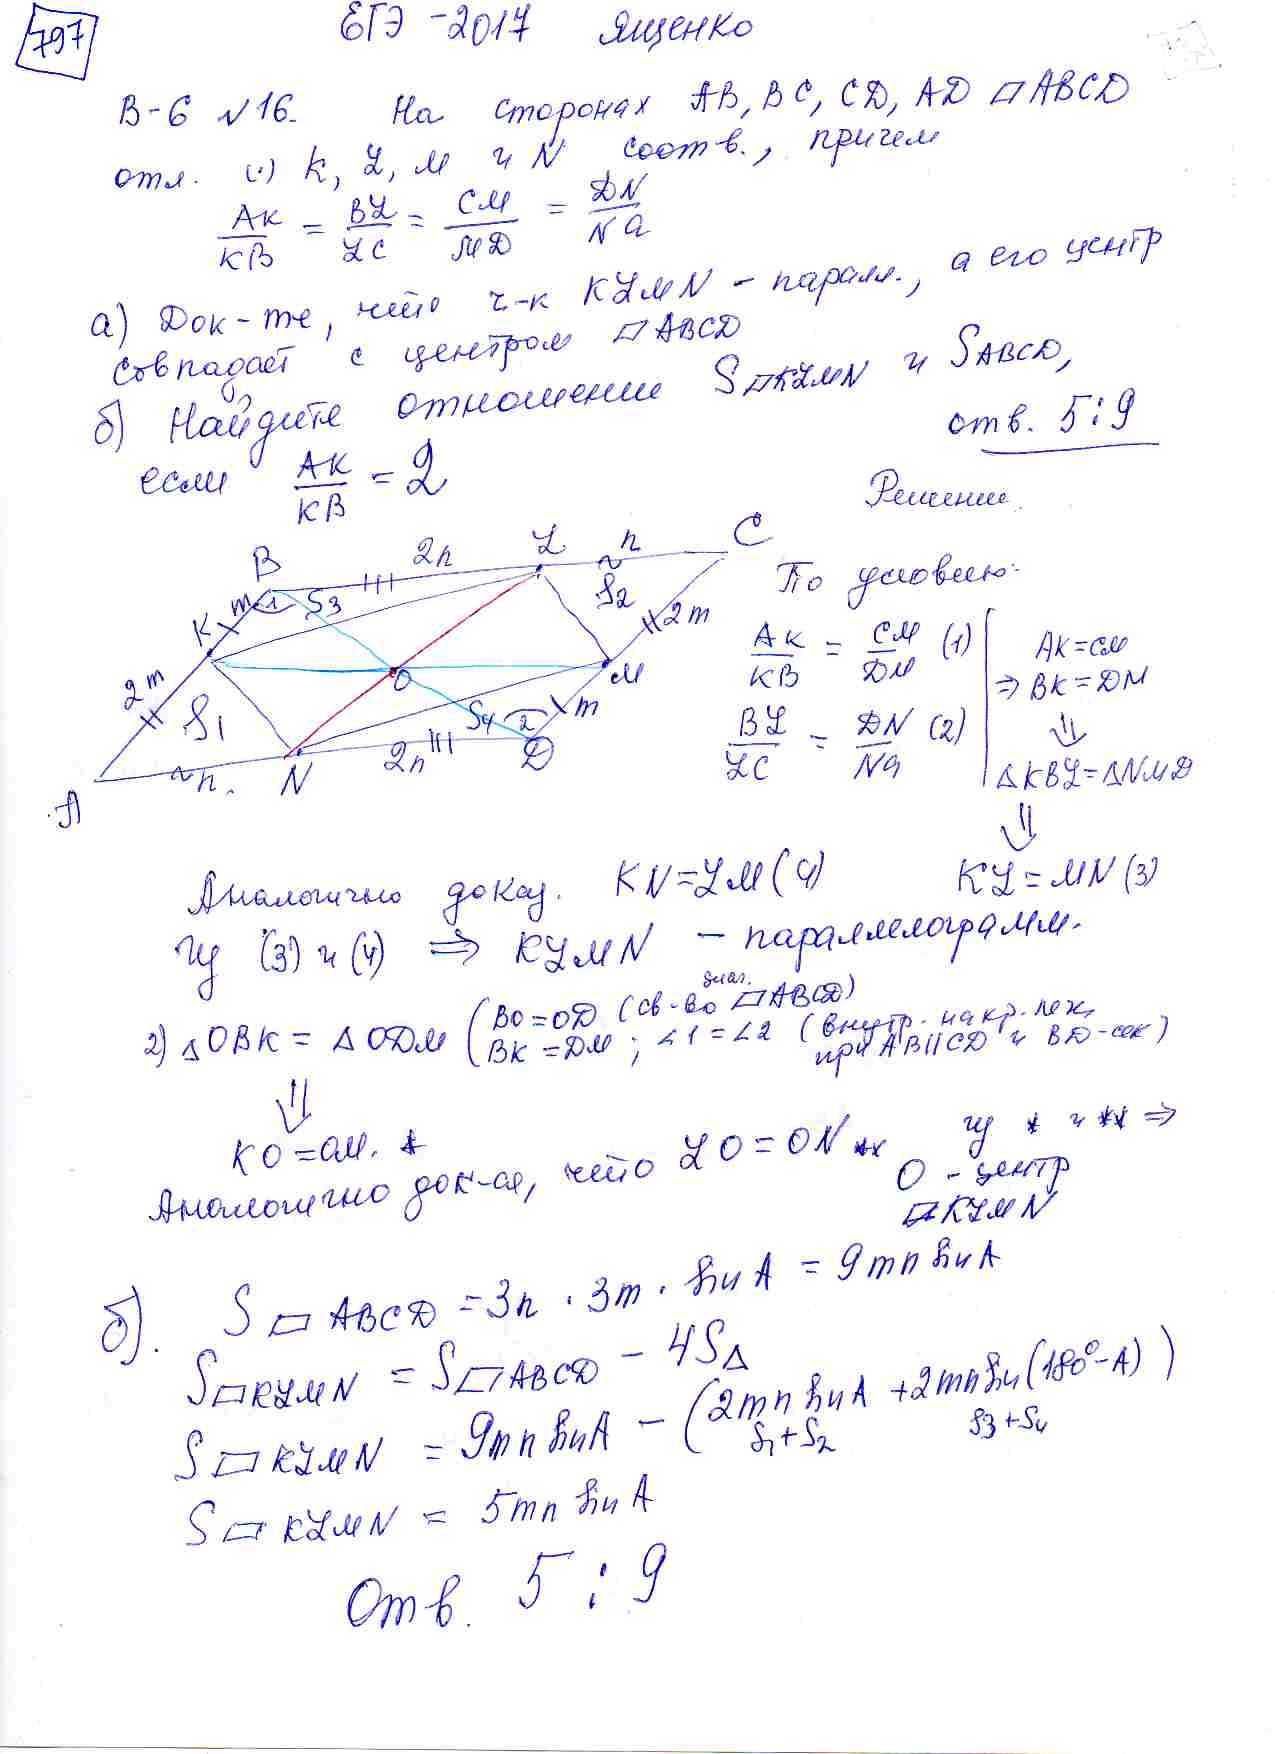 797
ЕГЭ - 2017 Ященко
В-6 №16. На сторонах AB, BC, CD, AD ▱ABCD
отм. (·) K, L, M и N соотв., причем
AK/KB = BL/LC = CM/MD = DN/NA
а) Док-те, что ч-к KLMN - паралл., а его центр
совпадает с центром ▱ABCD
б) Найдите отношение S▱KLMN и SABCD,
если AK/KB = 2
отв. 5:9
Решение
B 2n L n C
m 1 S3 S2 2m
K O M
2m S1 S4 2 m
A n. N 2n D
По условию:
AK/KB = CM/DM (1)
BL/LC = DN/NA (2)
AK=CM
⇒ BK=DM
⇓
△KBL=△NMD
⇓
KL=MN (3)
Аналогично доказ. KN=LM (4)
Из (3) и (4) ⇒ KLMN - параллелограмм.
2) △OBK = △ODM (BO=OD (св-во диаг. ▱ABCD)
BK=DM; ∠1=∠2 (внутр. накр. леж.
при AB||CD и BD-сек)
⇓
KO=OM. *
Аналогично док-ся, что LO=ON **
Из * и ** ⇒
O - центр
▱KLMN
б). S▱ABCD = 3n · 3m · sin A = 9mn sin A
S▱KLMN = S▱ABCD - 4S△
S▱KLMN = 9mn sin A - (2mn sin A + 2mn sin(180°-A))
S1+S2 S3+S4
S▱KLMN = 5mn sin A
Отв. 5:9